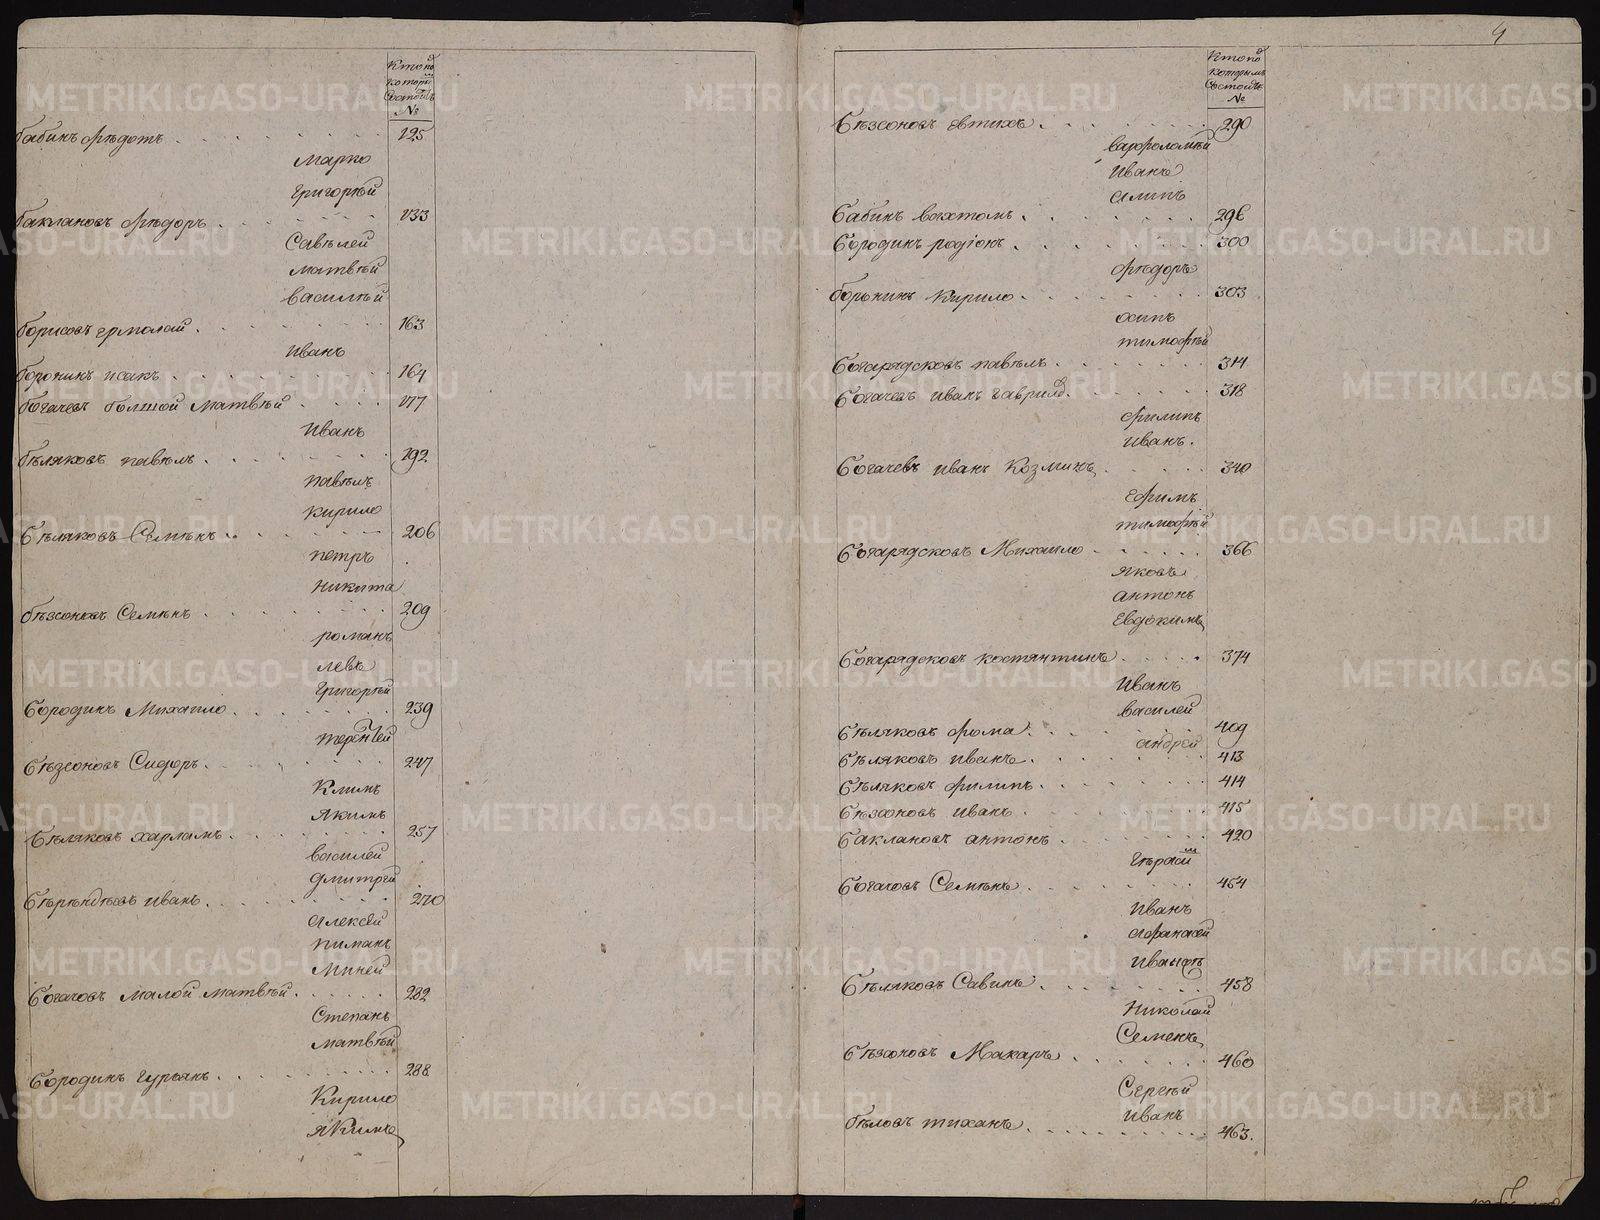 Кто подъ
которымъ
Состоитъ
№
Бабинъ Ѳѣдотъ 125
Марко
Григорѣй
Баклановъ Ѳѣдоръ 133
Савѣлей
Матвѣй
Василѣй
Борисовъ Ермолай 163
Иванъ
Боронинъ Исакъ 164
Богачевъ болшой Матвѣй 177
Иванъ
Бѣляковъ Павѣлъ 192
Павѣлъ
Кирило
Бѣляковъ Семѣнъ 206
Петръ
Никита
Бѣзсоновъ Семѣнъ 209
Романъ
Левъ
Григорѣй
Бородинъ Михаило 239
Терентей
Бѣзсоновъ Сидоръ 247
Климъ
Якимъ
Бѣляковъ Харламъ 257
Василей
Дмитрей
Бѣрѣндѣевъ Иванъ 270
Алексей
Пиманъ
Миней
Богачовъ малой Матвѣй 282
Степанъ
Матвѣй
Бородинъ Гурьянъ 288
Кирило
Якимъ
4
Кто подъ
которымъ
Состоитъ
№
Бѣзсоновъ Евтихъ 290
Варфоломѣй
Иванъ
Алипъ
Бабинъ 296
Бородинъ Родіонъ 300
Ѳѣдоръ
Боронинъ Кирило 303
Осипъ
Тимофѣй
Богарядсковъ Павѣлъ 314
Богачевъ Иванъ Гаврилов 318
Филипъ
Иванъ
Богачевъ Иванъ Козминъ 340
Ефимъ
Тимофѣй
Богарядсковъ Михаило 366
Яковъ
Антонъ
Евдокимъ
Богарядсковъ Костянтинъ 374
Иванъ
Василей
Бѣляковъ Фома 409
Андрей
Бѣляковъ Иванъ 413
Бѣляковъ Филипъ 414
Бѣзсоновъ Иванъ 415
Баклановъ Антонъ 420
Гѣрасим
Богачовъ Семѣнъ 454
Иванъ
Афанасей
Иванъ
Бѣляковъ Савинъ 458
Николай
Семенъ
Бѣзсоновъ Макаръ 460
Сергѣй
Иванъ
Бѣловъ Тиханъ 463.
METRIKI.GASO-URAL.RU